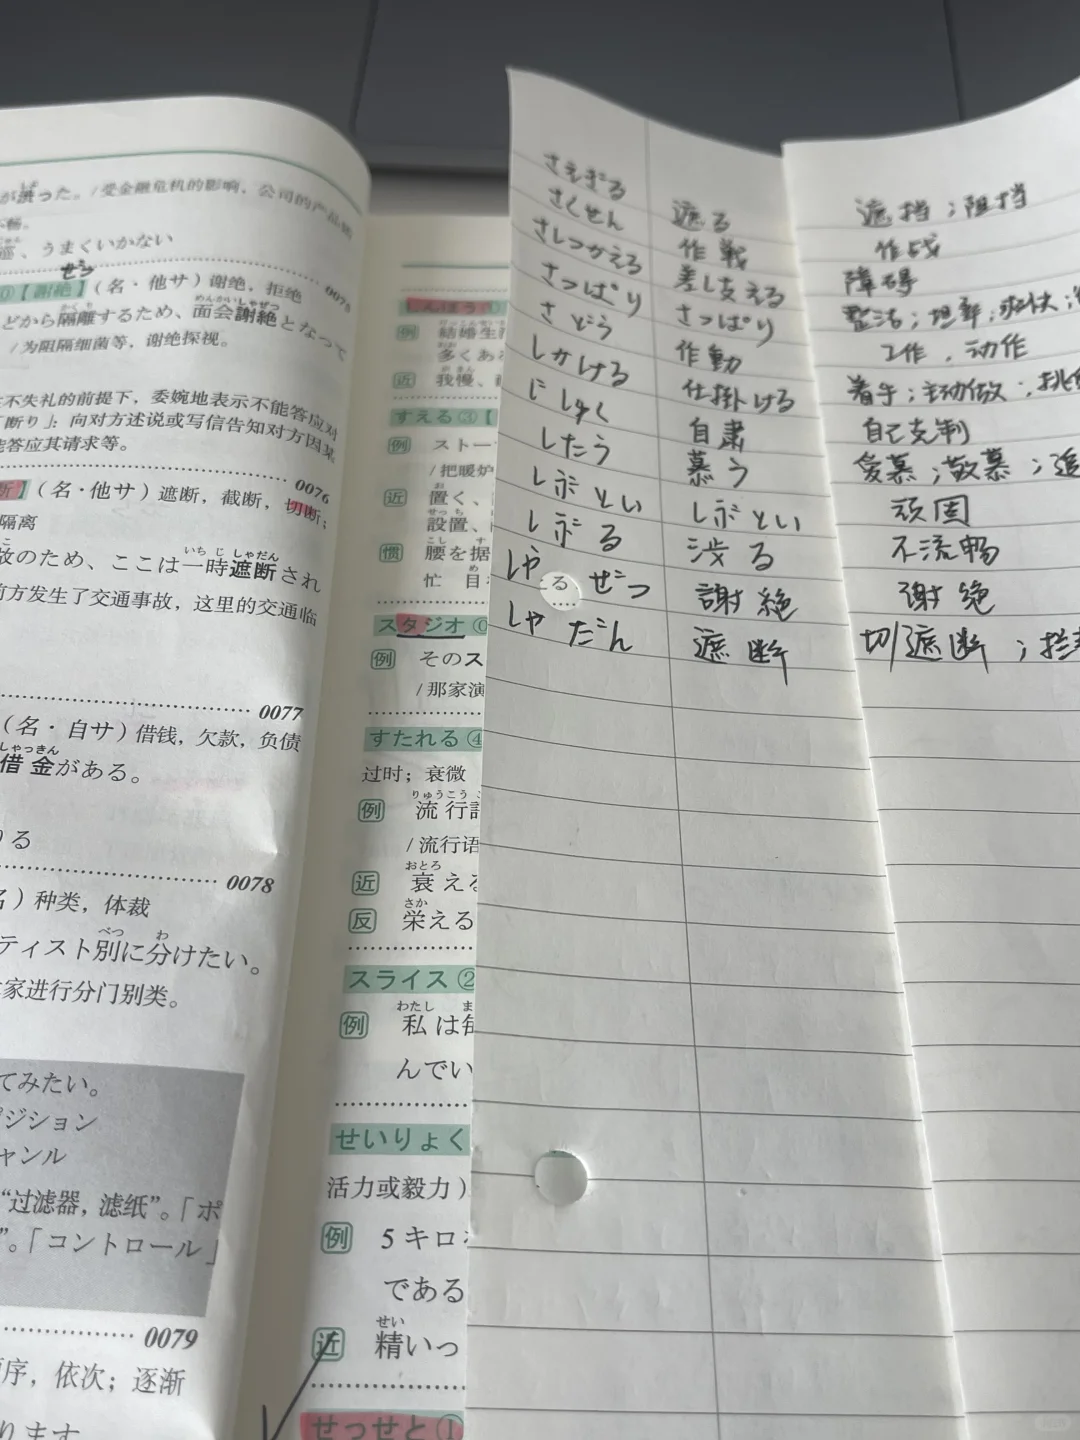 が渋った。/受金融危机的影响，公司的产品销
不畅。
、うまくいかない
ぜつ
0075
①【謝絶】（名・他サ）谢绝，拒绝
どから隔離するため、面会謝絶となって
/为阻隔细菌等，谢绝探视。
不失礼的前提下，委婉地表示不能答应对
「断り」：向对方述说或写信告知对方因某
能答应其请求等。
0076
断】（名・他サ）遮断，截断，切断；
隔离
故のため、ここは一時遮断され
前方发生了交通事故，这里的交通临
0077
（名・自サ）借钱，欠款，负债
借金がある。
りる
0078
名）种类，体裁
ティスト別に分けたい。
家进行分门别类。
てみたい。
ジション
ャンル
“过滤器，滤纸”。「ポ
”。「コントロール」
0079
序，依次；逐渐
ります
しんぼう
例 結婚生
多くあ
近 我慢、
すえる③【
例 ストー
/把暖炉
近 置く、
設置、
惯 腰を据
忙 目
スタジオ⓪
例 そのス
/那家演
すたれる④
过时；衰微
例 流行
/流行语
近 衰える
反 栄える
スライス②
例 私は毎
んでい
せいりょく
活力或毅力）
例 5キロ
である
近 精いっ
せっせと①
さえぎる 遮る 遮挡；阻挡
さくせん 作戦 作战
さしつかえる 差し支える 障碍
さっぱり さっぱり 整洁；坦率；爽快；
さどう 作動 工作，动作
しかける 仕掛ける 着手；主动做；挑
じしゅく 自粛 自己克制
したう 慕う 爱慕；敬慕；追
しぶとい しぶとい 顽固
しぶる 渋る 不流畅
しゃぜつ 謝絶 谢绝
る
しゃだん 遮断 切/遮断；拦